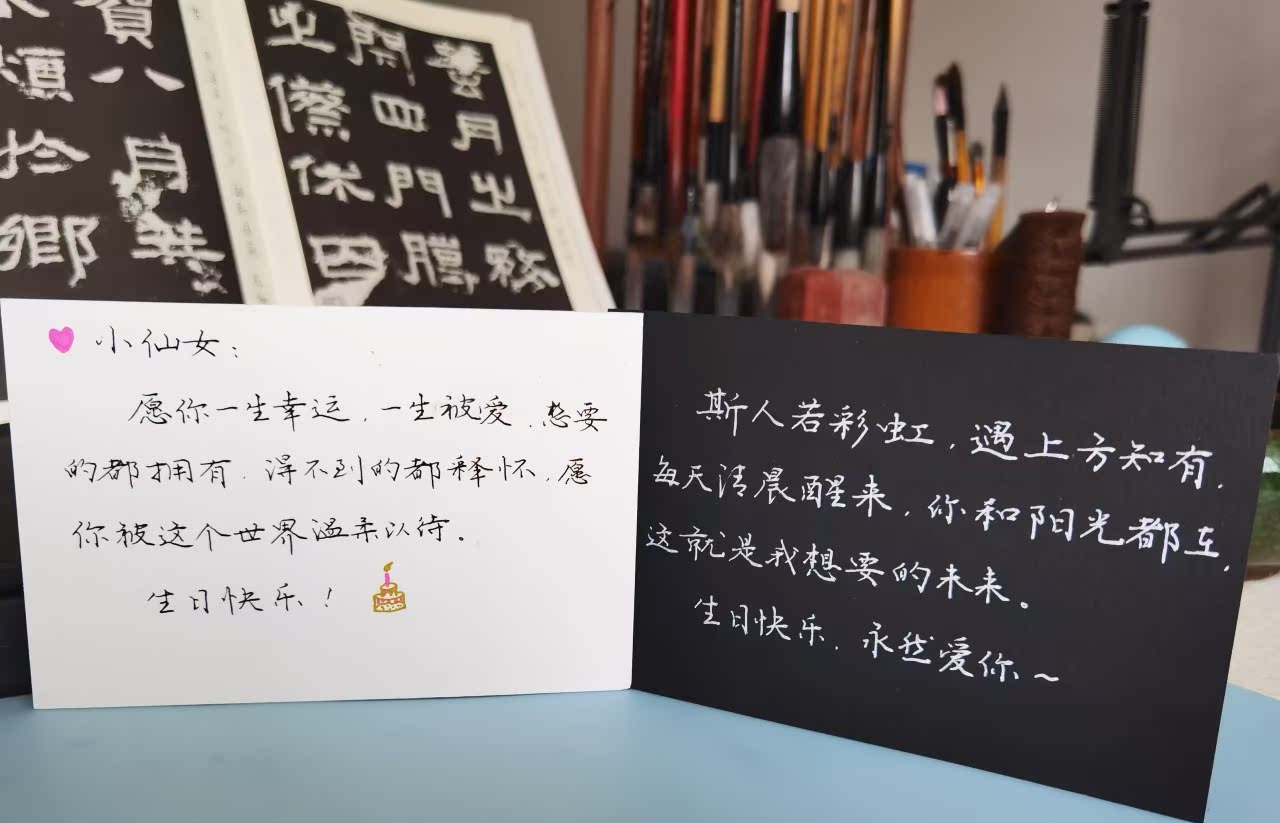 蠶月之務
閉四門臘
之祭休囚
賀八月筭
煩於鄉
小仙女：
愿你一生幸运，一生被爱，想要
的都拥有，得不到的都释怀，愿
你被这个世界温柔以待。
生日快乐！
斯人若彩虹，遇上方知有，
每天清晨醒来，你和阳光都在，
这就是我想要的未来。
生日快乐，永然爱你~